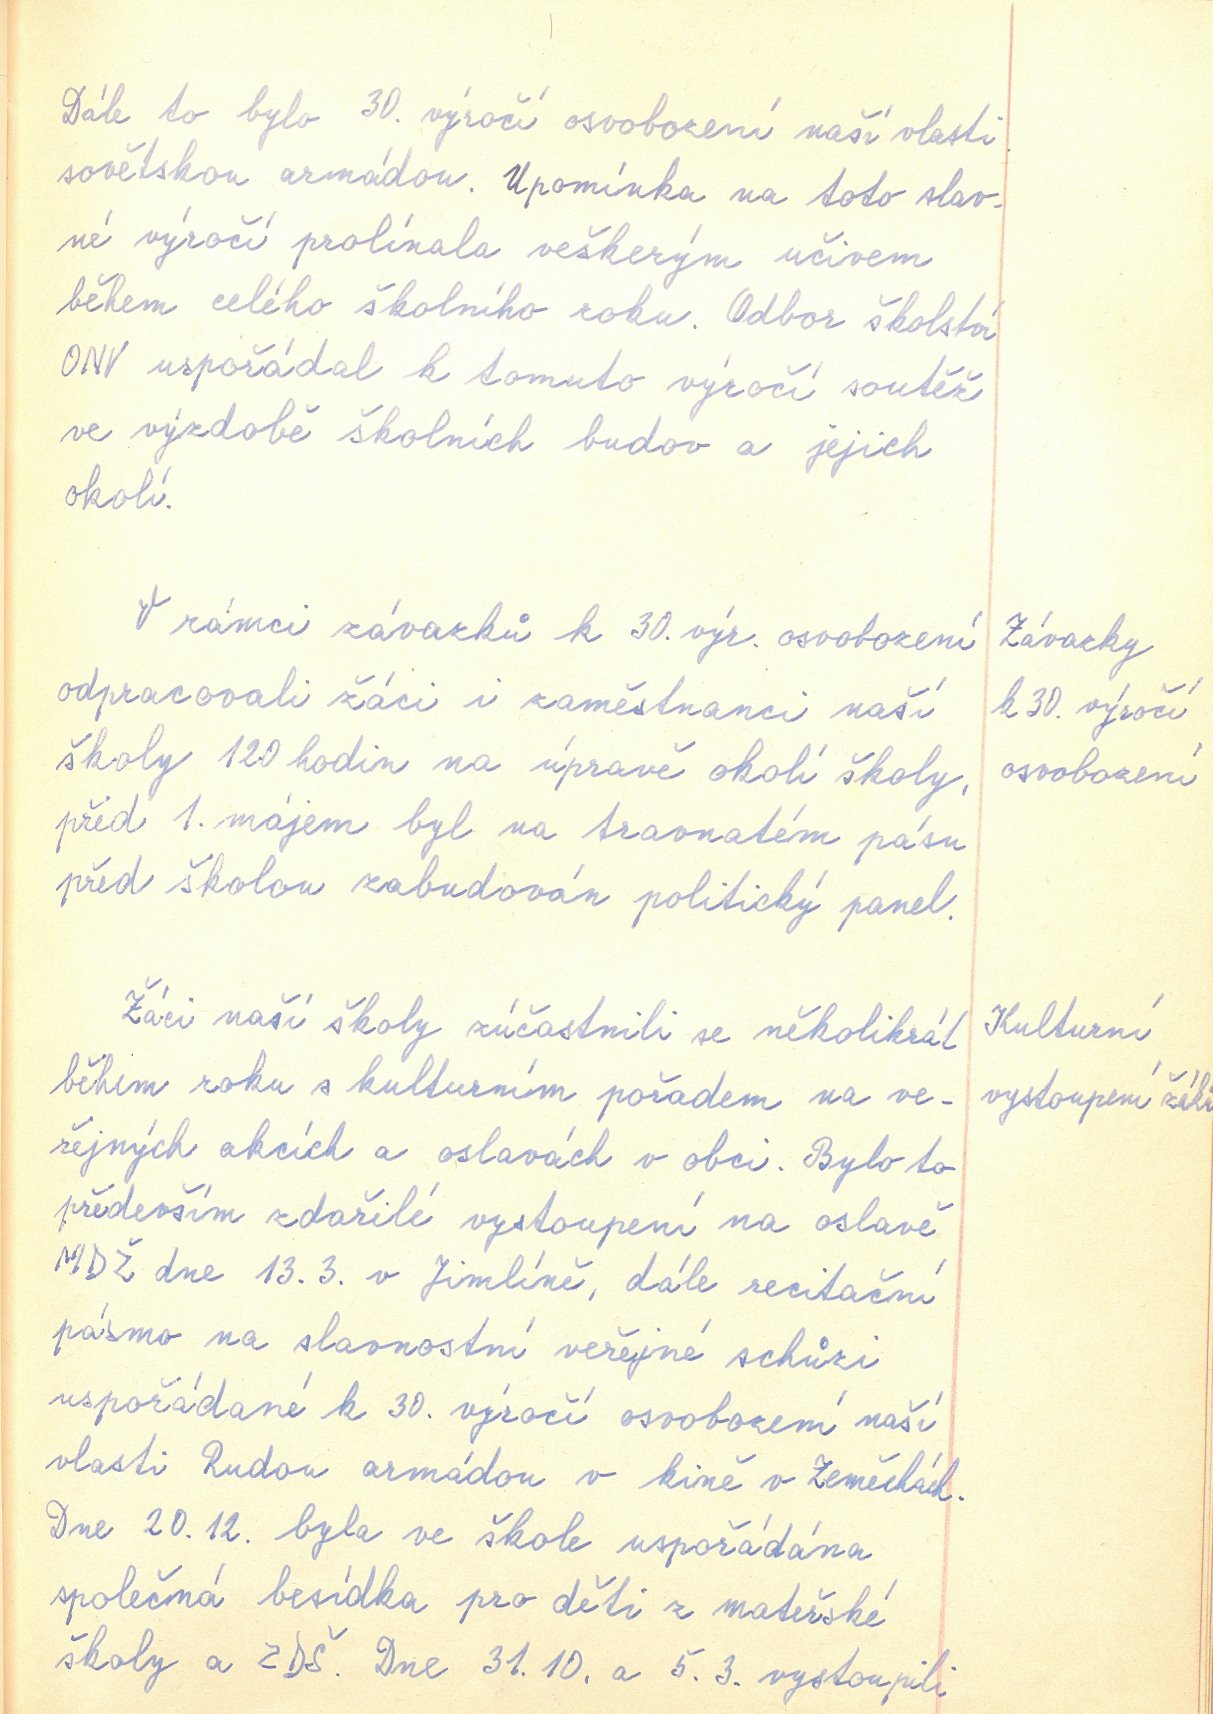 Dále to bylo 30. výročí osvobození naší vlasti
sovětskou armádou. Upomínka na toto slav-
né výročí prolínala veškerým učivem
během celého školního roku. Odbor školství
ONV uspořádal k tomuto výročí soutěž
ve výzdobě školních budov a jejich
okolí.
V rámci závazků k 30. výr. osvobození
odpracovali žáci i zaměstnanci naší
školy 120 hodin na úpravě okolí školy,
před 1. májem byl na travnatém pásu
před školou zabudován politický panel.
Závazky
k 30. výročí
osvobození
Žáci naší školy zúčastnili se několikrát
během roku s kulturním pořadem na ve-
řejných akcích a oslavách v obci. Bylo to
především zdařilé vystoupení na oslavě
MDŽ dne 13. 3. v Jimlíně, dále recitační
pásmo na slavnostní veřejné schůzi
uspořádané k 30. výročí osvobození naší
vlasti Rudou armádou v kině v Zeměchách.
Dne 20. 12. byla ve škole uspořádána
společná besídka pro děti z mateřské
školy a ZDŠ. Dne 31. 10. a 5. 3. vystoupili
Kulturní
vystoupení žáků